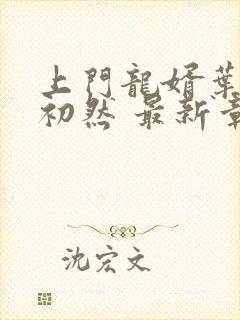 上門龍婿葉
初然 最新章
沈宏文